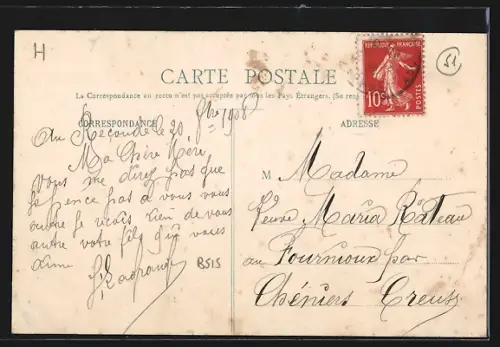 H
51
RÉPUBLIQUE FRANÇAISE
10c
POSTES
CARTE POSTALE
La Correspondance au recto n'est pas acceptée par tous les Pays Étrangers. (Se ren
CORRESPONDANCE
ADRESSE
Au le 20 1908
Ma Chère Mère
vous me direz pas que
je pence pas a vous vous
autre je verais rien de vous
autre votre fils qui vous
aime
B515
M Madame
Veuve Maria Rateau
au Fournioux par
Chéniers Creuse